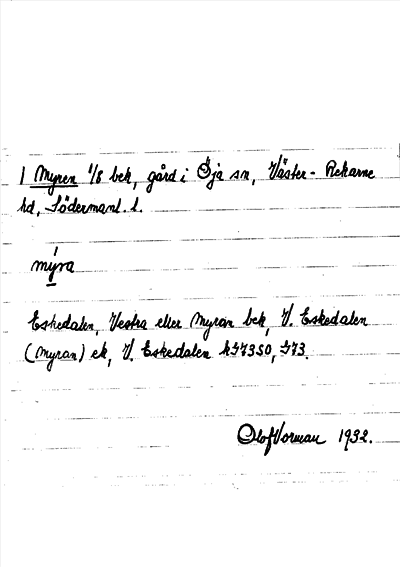 1 Myren 1/8 bek, gård i Öja sn, Väster-Rekarne
hd, Södermanl. l.
mýra
Eskedalen, Vestra eller Myran bek, V. Eskedalen
(Myran) ek, V. Eskedalen
Olof Vorman 1932.